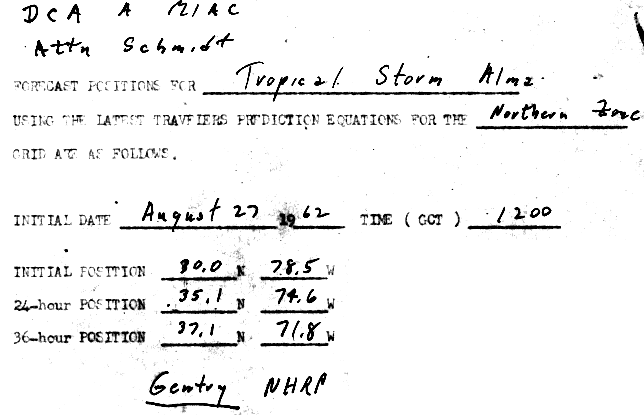 DCA A MIAC
Attn Schmidt
FORECAST POSITIONS FOR Tropical Storm Alma
USING THE LATEST TRAVELERS PREDICTION EQUATIONS FOR THE Northern Zone
GRID ARE AS FOLLOWS.
INITIAL DATE August 27 1962 TIME ( GCT ) 1200
INITIAL POSITION 30.0 N 78.5 W
24-hour POSITION 35.1 N 74.6 W
36-hour POSITION 37.1 N 71.8 W
Gentry NHRP